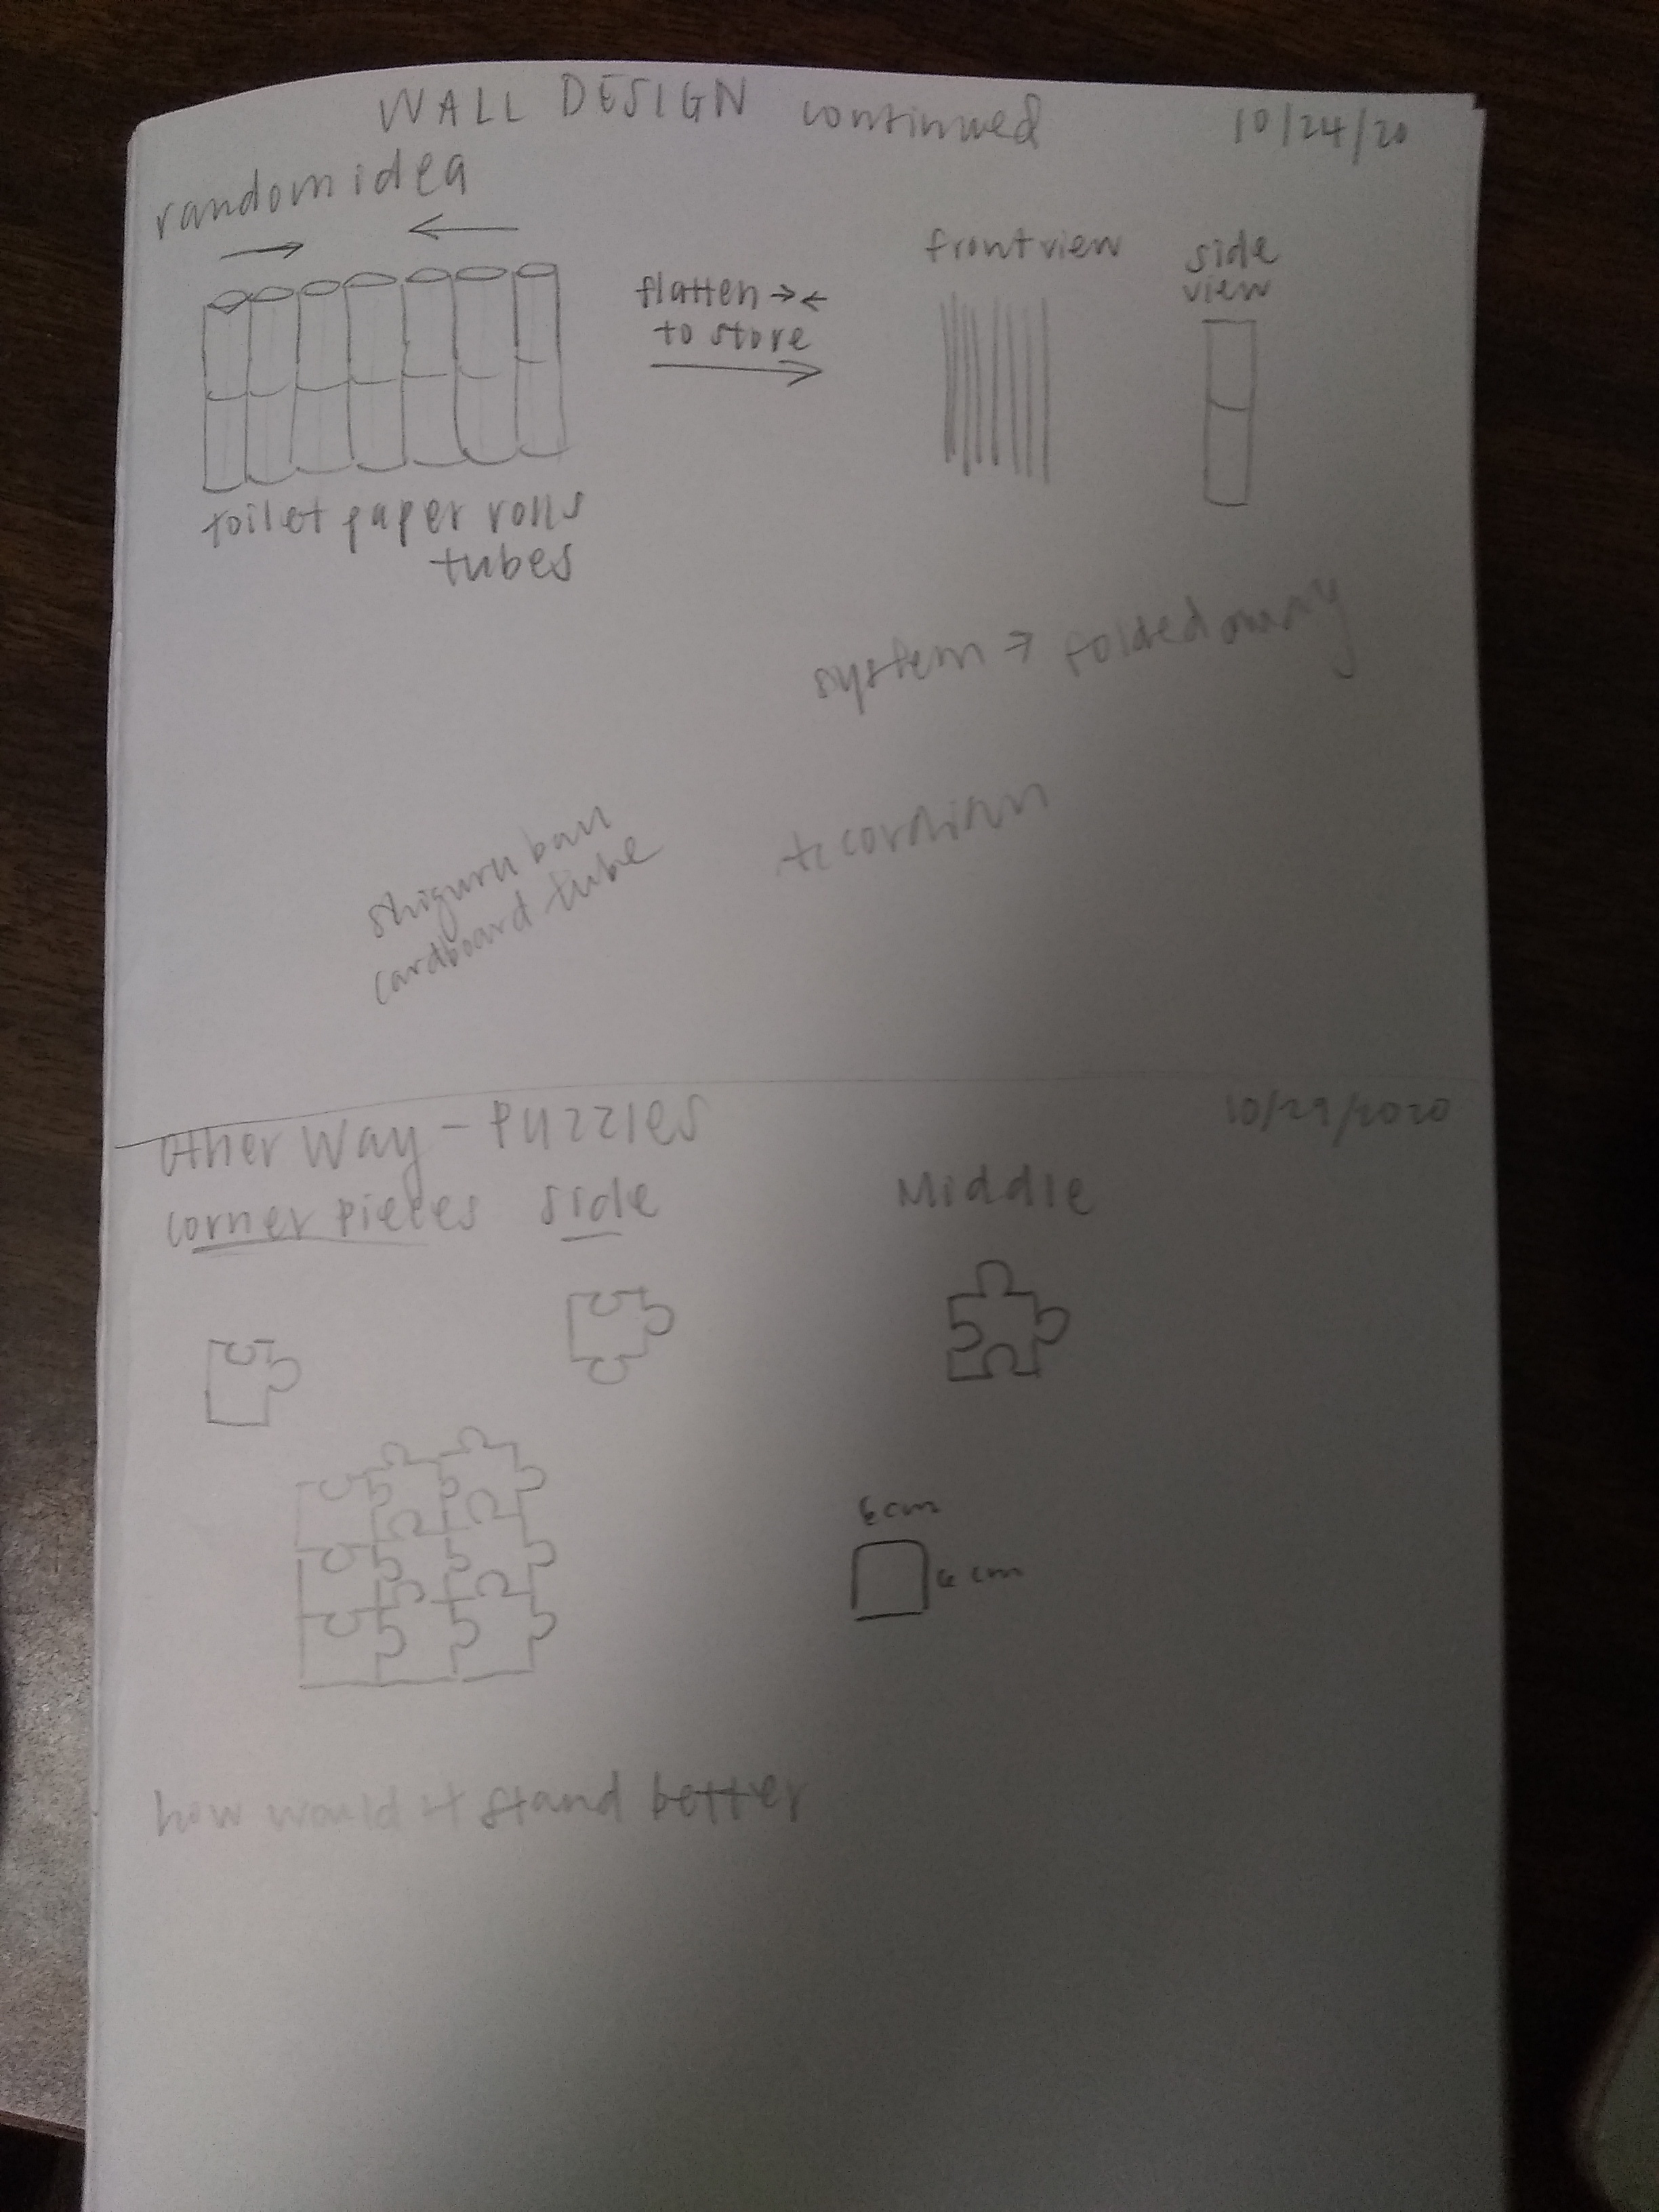 WALL DESIGN continued 10/24/20
random idea
toilet paper rolls
tubes
flatten →←
to store
front view
side
view
system → folded away
shiguru ban
cardboard tube
accordian
other way - PUZZLES 10/29/2020
corner pieces side Middle
6cm
6 cm
how would it stand better